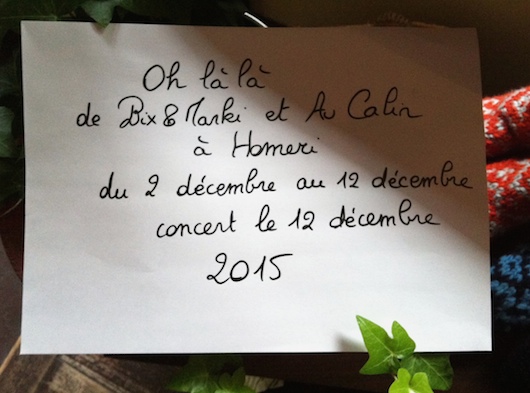 Oh là là
de Bix & Marki et Av Calin
à Homeri
du 2 décembre au 12 décembre
concert le 12 décembre
2015